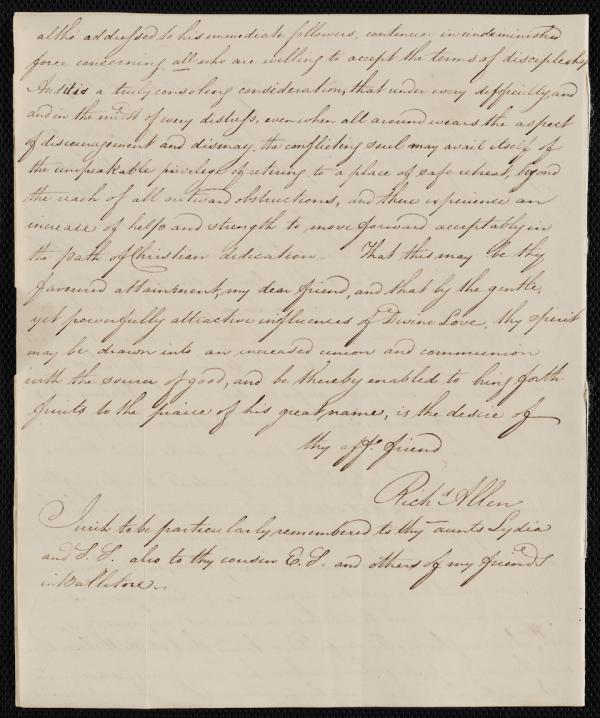 altho' addressed to his immediate followers, continue in undiminished
force concerning all who are willing to accept the terms of discipleship
And it is a truly consoling consideration, that under every difficulty, and
and in the midst of every distress, even when all around wears the aspect
of discouragement and dismay, the conflicting soul may avail itself of
the unspeakable privilege of retiring to a place of safe retreat, beyond
the reach of all outward obstructions, and there experience an
increase of help and strength to move forward acceptably in
the path of Christian dedication. That this may be thy
favoured attainment, my dear friend, and that by the gentle,
yet powerfully attractive influences of Divine Love, thy spirit
may be drawn into an increased union and communion
with the source of good, and be thereby enabled to bring forth
fruits to the praise of his great name, is the desire of
thy aff.t friend
Rich.d Allen
I wish to be particularly remembered to thy aunts Lydia
and S. L. also to thy cousin E. L. and others of my friends
in Ballitore.